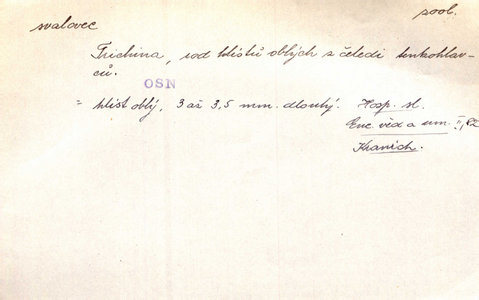 svalovec
zool.
Trichina, rod hlístů oblých z čeledi tenkohlav-
ců.
OSN
= hlíst oblý, 3 až 3,5 mm. dlouhý. Hosp. sl.
Enc. věd a um. II,
Kranich.